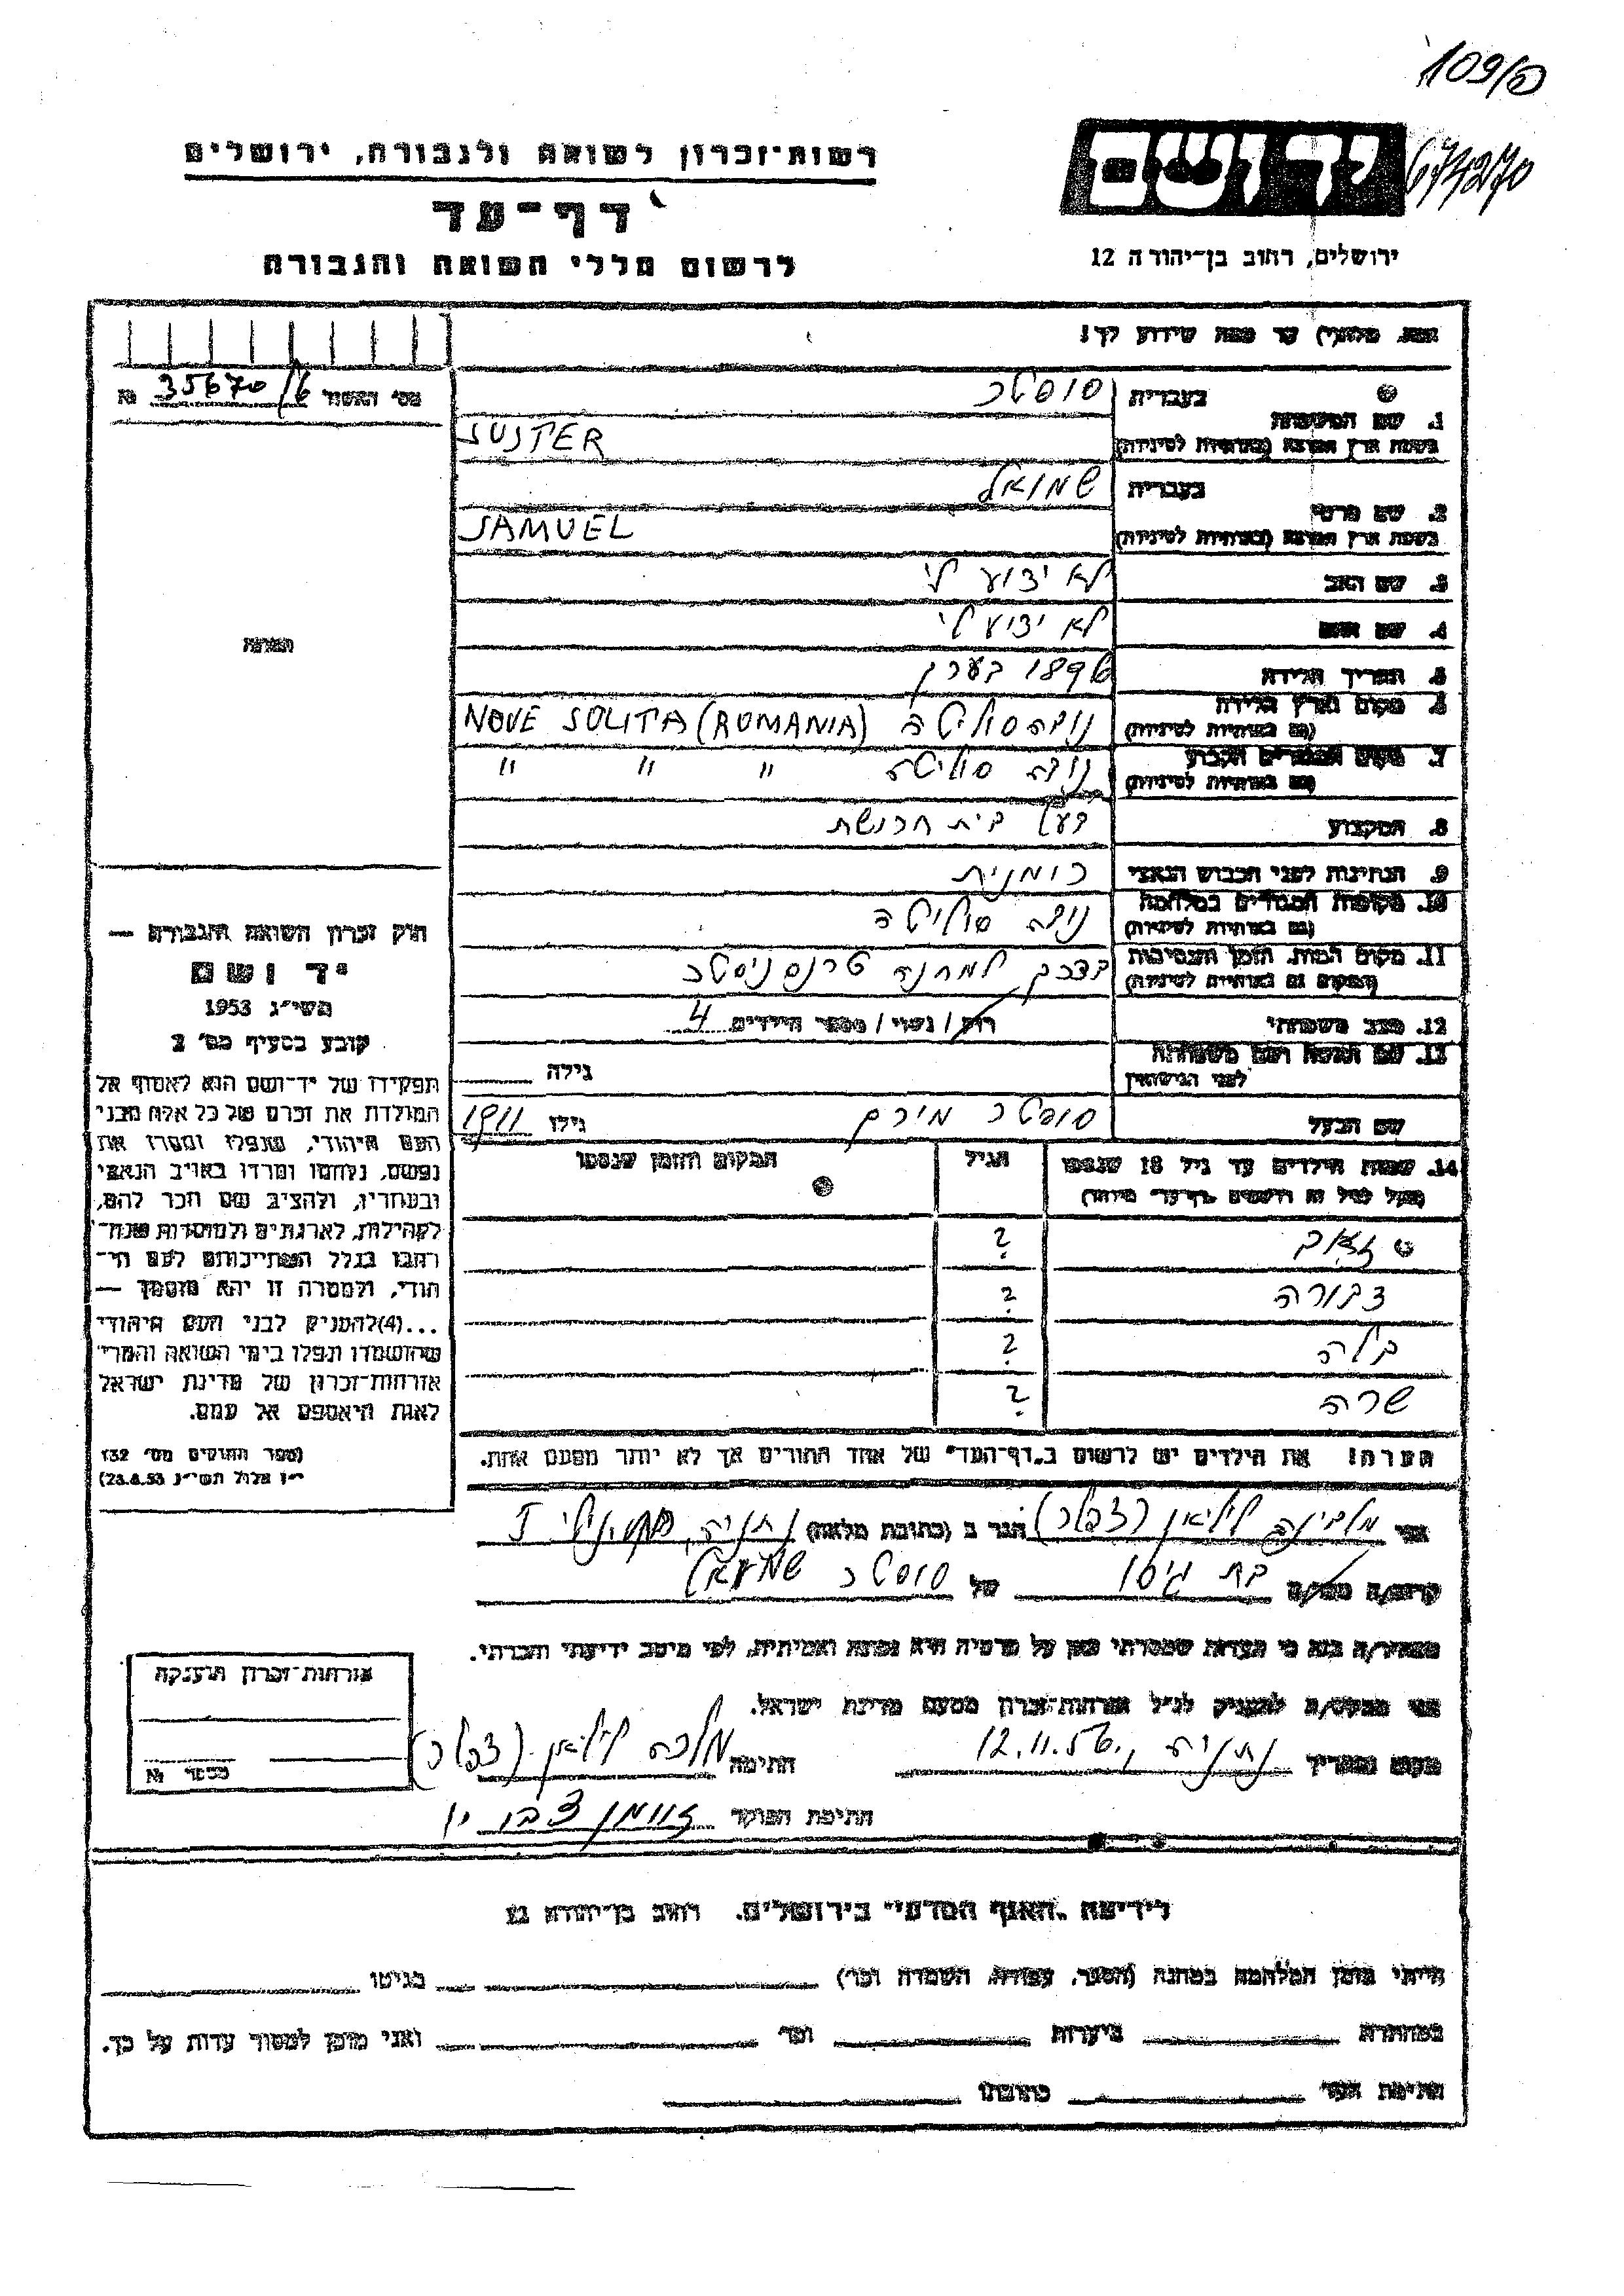 109/פ
674270
יד ושם
ירושלים, רחוב בן-יהודה 12
רשות-זכרון לשואה ולגבורה, ירושלים
דף-עד
לרשום חללי השואה והגבורה
נא, למלא עד כמה שידוע לך!
מס' האשור 35670/6 №
1. שם המשפחה
בעברית סוסטר
בשפת ארץ המוצא (באותיות לטיניות) SUSTER
2. שם פרטי
בעברית שמואל
בשפת ארץ המוצא (באותיות לטיניות) SAMUEL
3. שם האב לא ידוע לי
4. שם האם לא ידוע לי
5. תאריך הלידה 1896 בערך
6. מקום וארץ הלידה (גם באותיות לטיניות) נובה סוליטה NOVE SOLITA (ROMANIA)
7. מקום המגורים הקבוע (גם באותיות לטיניות) נובה סוליטה " " "
8. המקצוע בעל בית חרושת
9. הנתינות לפני הכבוש הנאצי רומנית
10. מקומות המגורים במלחמה (גם באותיות לטיניות) נובה סוליטה
11. מקום המות, הזמן והנסיבות (המקום גם באותיות לטיניות) בדרך למחנה טרנסניסטר
12. מצב משפחתי רוק / נשוי / מספר הילדים 4
13. שם האשה ושם משפחתה לפני הנישואין
גילה
שם הבעל סוסטר מירם גילו 1911
14. שמות הילדים עד גיל 18 שנספו
הגיל
המקום והזמן שנספו
?
דבורה ?
בלה ?
שרה ?
הערה! את הילדים יש לרשום ב„דף-העד" של אחד ההורים אך לא יותר מפעם אחת.
תמונה
חוק זכרון השואה והגבורה —
יד ושם
תשי"ג 1953
קובע בסעיף מס' 2
תפקידו של יד-ושם הוא לאסוף אל
המולדת את זכרם של כל אלה מבני
העם היהודי, שנפלו ומסרו את
נפשם, נלחמו ומרדו באויב הנאצי
ובעוזריו, ולהציב שם וזכר להם,
לקהילות, לארגונים ולמוסדות שנח-
רבו בגלל השתייכותם לעם הי-
הודי, ולמטרה זו יהא מוסמך —
...(4) להעניק לבני העם היהודי
שהושמדו ונפלו בימי השואה והמרי
אזרחות-זכרון של מדינת ישראל
לאות היאספם אל עמם.
(ספר החוקים מס' 132
י"ז אלול תשי"ג 28.8.53)
אני ליליאן הגר ב (כתובת מלאה) נתניה,
קרוב/ה בת גיסו של סוסטר שמואל
מצהיר/ה בזה כי העדות שמסרתי כאן על פרטיה היא נכונה ואמיתית, לפי מיטב ידיעתי והכרתי.
אני מבקש/ת להעניק לנ"ל אזרחות-זכרון מטעם מדינת ישראל.
מקום ותאריך נתניה, 12.11.56 חתימה ליליאן
חתימת הפוקד
אזרחות-זכרון הוענקה
מספר №
לידיעת „האגף המדעי" בירושלים. רחוב בן-יהודה 12
הייתי בזמן המלחמה במחנה (הסגר, עבודה, השמדה וכו') בגיטו
במחתרת ביערות וכו' ואני מוכן למסור עדות על כך.
חתימת העד כתובתו